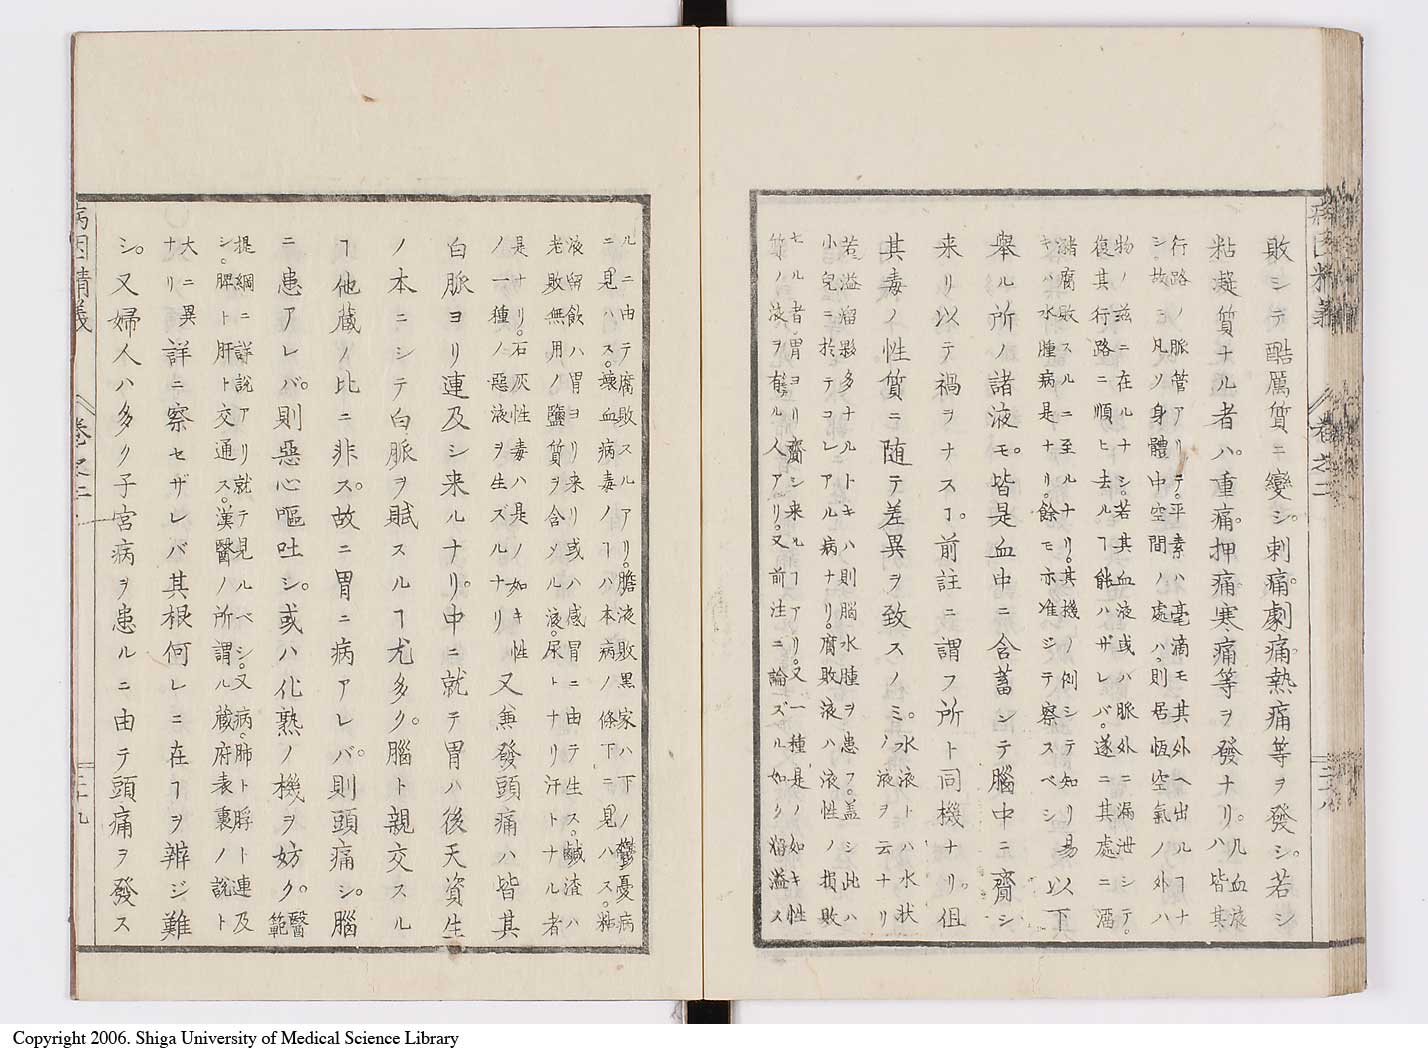 敗シテ酷厲質ニ變シ。刺痛。劇痛。熱痛等ヲ發シ。若シ
粘凝質ナル者ハ。重痛。押痛寒痛等ヲ發ナリ。凡血液
ハ皆其
行路ノ脈管アリテ。平素ハ毫滴モ其外ヘ出ルヿナ
シ。故ニ凡ソ身體中空間ノ處ハ。則居恆空氣ノ外ハ
物ノ茲ニ在ルナシ。若其血液或ハ脈外ニ漏泄シテ。
復其行路ニ順ヒ去ル。ヿ能ハザレバ。遂ニ其處ニ
瀦腐敗スルニ至ルナリ。其機ノ例シテ知リ易
キハ水腫病是ナリ。餘モ亦准ジテ察スベシ
以下
舉ル所ノ諸液モ。皆是血中ニ含蓄シテ腦中ニ齎シ
来リ以テ禍ヲナスヿ。前註ニ謂フ所ト同機ナリ。但
其毒ノ性質ニ随テ差異ヲ致スノミ。水液トハ水状
ノ液ヲ云ナリ
若溢瘤夥多ナルトキハ則腦水腫ヲ患フ。盖シ此ハ
小兒ニ於テコレアル病ナリ。腐敗液ハ液性ノ損敗
セル者。胃ヨリ齎シ来ルヿアリ。又一種是ノ如キ性
質ノ液ヲ有ル人アリ。又前注ニ論ズル如ク瘤溢ス
病因精義 卷之二 二十八
ルニ由テ腐敗スルアリ。膽液敗黒家ハ下ノ鬱憂病
ニ見ハス。壊血病毒ノヿハ本病ノ條下ニ見ハス。粘
液留飲ハ胃ヨリ来リ或ハ感冒ニ由テ生ス。鹹渣ハ
老敗無用ノ鹽質ヲ含メル液。尿トナリ汗トナル者
是ナリ。石灰性毒ハ是ノ如キ性
ノ一種ノ惡液ヲ生ズルナリ
又兼發頭痛ハ皆其
白脈ヨリ連及シ来ルナリ。中ニ就テ胃ハ後天資生
ノ本ニシテ白脈ヲ賦スルヿ尤多ク。腦ト親交スル
ヿ他蔵ノ比ニ非ス。故ニ胃ニ病アレバ。則頭痛シ。腦
ニ患アレバ。則惡心嘔吐シ。或ハ化熟ノ機ヲ妨ク。醫
範
提綱ニ詳説アリ就テ見ルベシ。又病。肺ト脬ト連及
シ。脾ト肝ト交通ス。漢醫ノ所謂ル蔵府表裏ノ説ト
大ニ異
ナリ
詳ニ察セザレバ其根何レニ在ヿヲ辨ジ難
シ。又婦人ハ多ク子宮病ヲ患ルニ由テ頭痛ヲ發ス
病因精義 卷之二 二十九
Copyright 2006. Shiga University of Medical Science Library